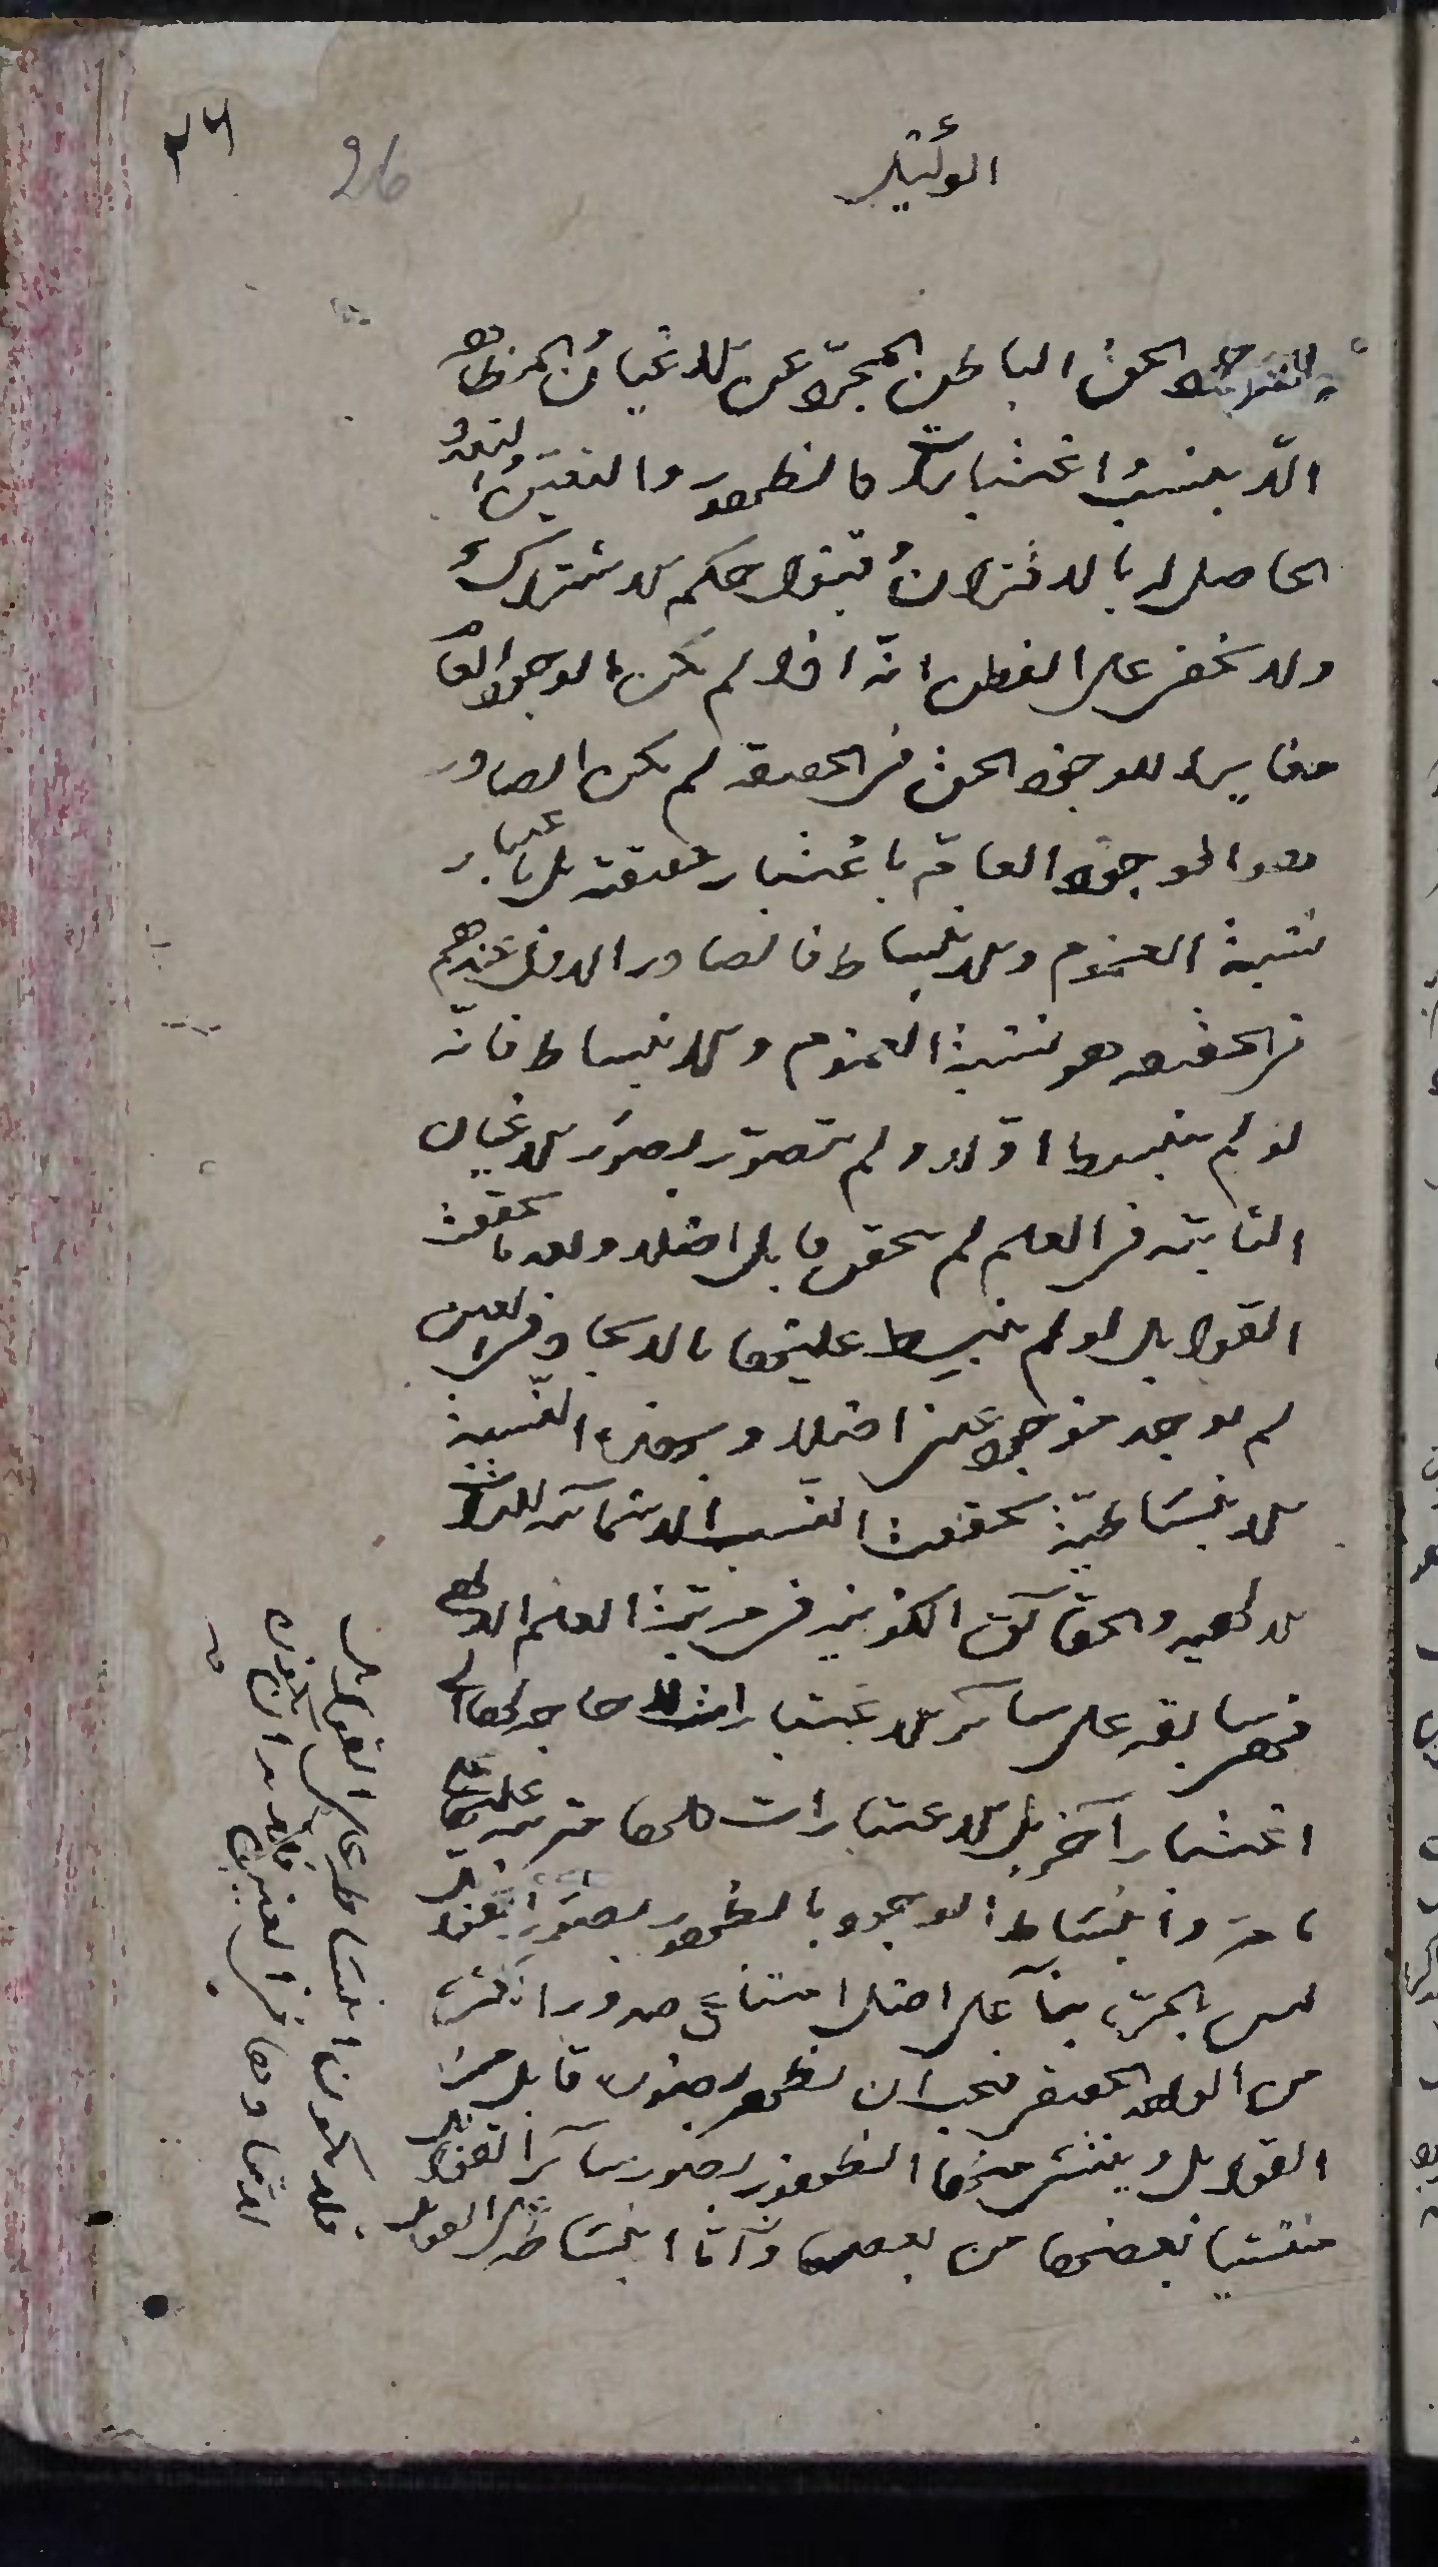 ٢٦
26
الوليّة
الوجود الحق الباطن المجرّد عن الاعيان والمظاهر
الّا بنسب واعتبارات كالظهور والتعيّن والتعدد
الحاصل له بالاقتران وقبول حكم الاشتراك
ولا يخفى على الفطن انّه اذا لم يكن الوجود العام
مغايرا للوجود الحق في الحقيقة لم يكن الصادر
هو الوجود العام باعتبار حقيقته بل باعتبار
نسبة العموم والانبساط فالصادر الاول عندهم
في الحقيقة هو نسبة العموم والانبساط فانّه
لو لم ينبسط اولا ولم يتصوّر بصور الاعيان
الثابتة في العلم لم يتحقق قابل اصلا وبعد ما تحققت
القوابل لو لم ينبسط عليها بالايجاد في العين
لم يوجد موجود عيني اصلا وبهذه النّسبة
الانبساطيّة تحققت النسب الاسمائية للذات
الالهية والحقائق الكونية في مرتبة العلم الالهي
فهي سابقة على سائر الاعتبارات لا حاجة لها الى
اعتبار آخر بل الاعتبارات كلها مترتبة عليها
ما مرّ وانبساط الوجود بالظهور بصور القوابل
ليس بالمرّة بناء على اصل امتناع صدور الكثرة
من الواحد الحقيقي فيجب ان يظهر بصورة قابل من
القوابل وينتشي منها الظهور بصور سائر القوابل
منتشيا بعضها من بعض وامّا انبساطه على القوابل
فلا يكون انبساطه على القوابل
الايجادها في العين